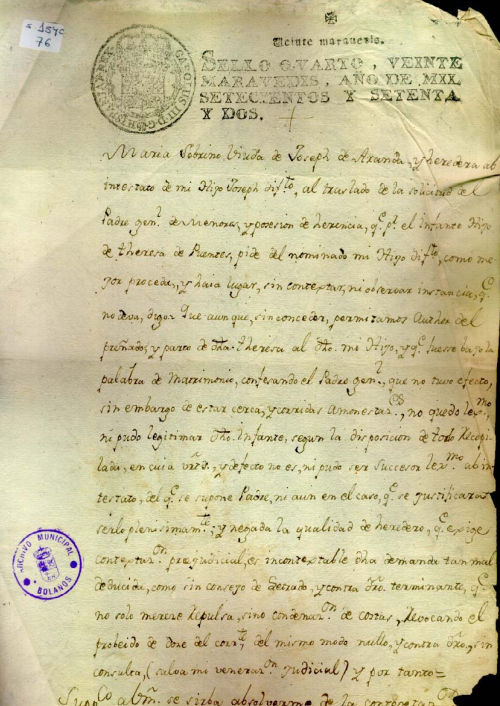 s. XVIII c
76
CAROLUS III D G HISPANIAR REX
Veinte maravedis.
SELLO QVARTO, VEINTE
MARAVEDIS, AÑO DE MIL
SETECIENTOS Y SETENTA
Y DOS.
Maria Sobrino, Viuda de Joseph de Aranda, y heredera ab
intestato de mi Hijo Joseph dif.to, al traslado de la solicitud del
Padre gen.l de Menores, y posesion de herencia, q.e p.r el Infante Hijo
de Theresa de Fuentes, pide del nominado mi Hijo dif.to, como me
jor proceda, y haia lugar, sin contextar, ni observar instancia, q.e
no deva, digo: Que aunque, sin conceder, permitamos Author del
preñado, y parto de dha. Theresa al dho. mi Hijo, y q.e fuesse bajo la
palabra de Matrimonio, confesando el Padre gen.l que no tuvo efecto,
sin embargo de estar cerca, y corridas Amonestaz.es, no quedo lex.mo
ni pudo legitimar dho. Infante, segun la disposicion de Recopi
lada, en cuia virt.d y defecto no es, ni pudo ser Successor lex.mo ab in
testato, del q.e se supone Padre, ni aun en el caso, q.e se justificara
serlo plenisimam.te; y negada la qualidad de heredero, q.e exige
contextaz.on prejudicial, es incontextable dha demanda tan mal
deducida, como sin consejo de Letrado, y contra dro. terminante, q.e
no solo merece repulsa, sino condenaz.on de costas, revocando el
probeido de del corr.te, del mismo modo nullo, y contra dro., sin
consulta, (salva mi veneraz.on judicial) y por tanto=
Supp.co a Vm. se sirba absolverme de la contextaz.on
ARCHIVO MUNICIPAL
BOLAÑOS